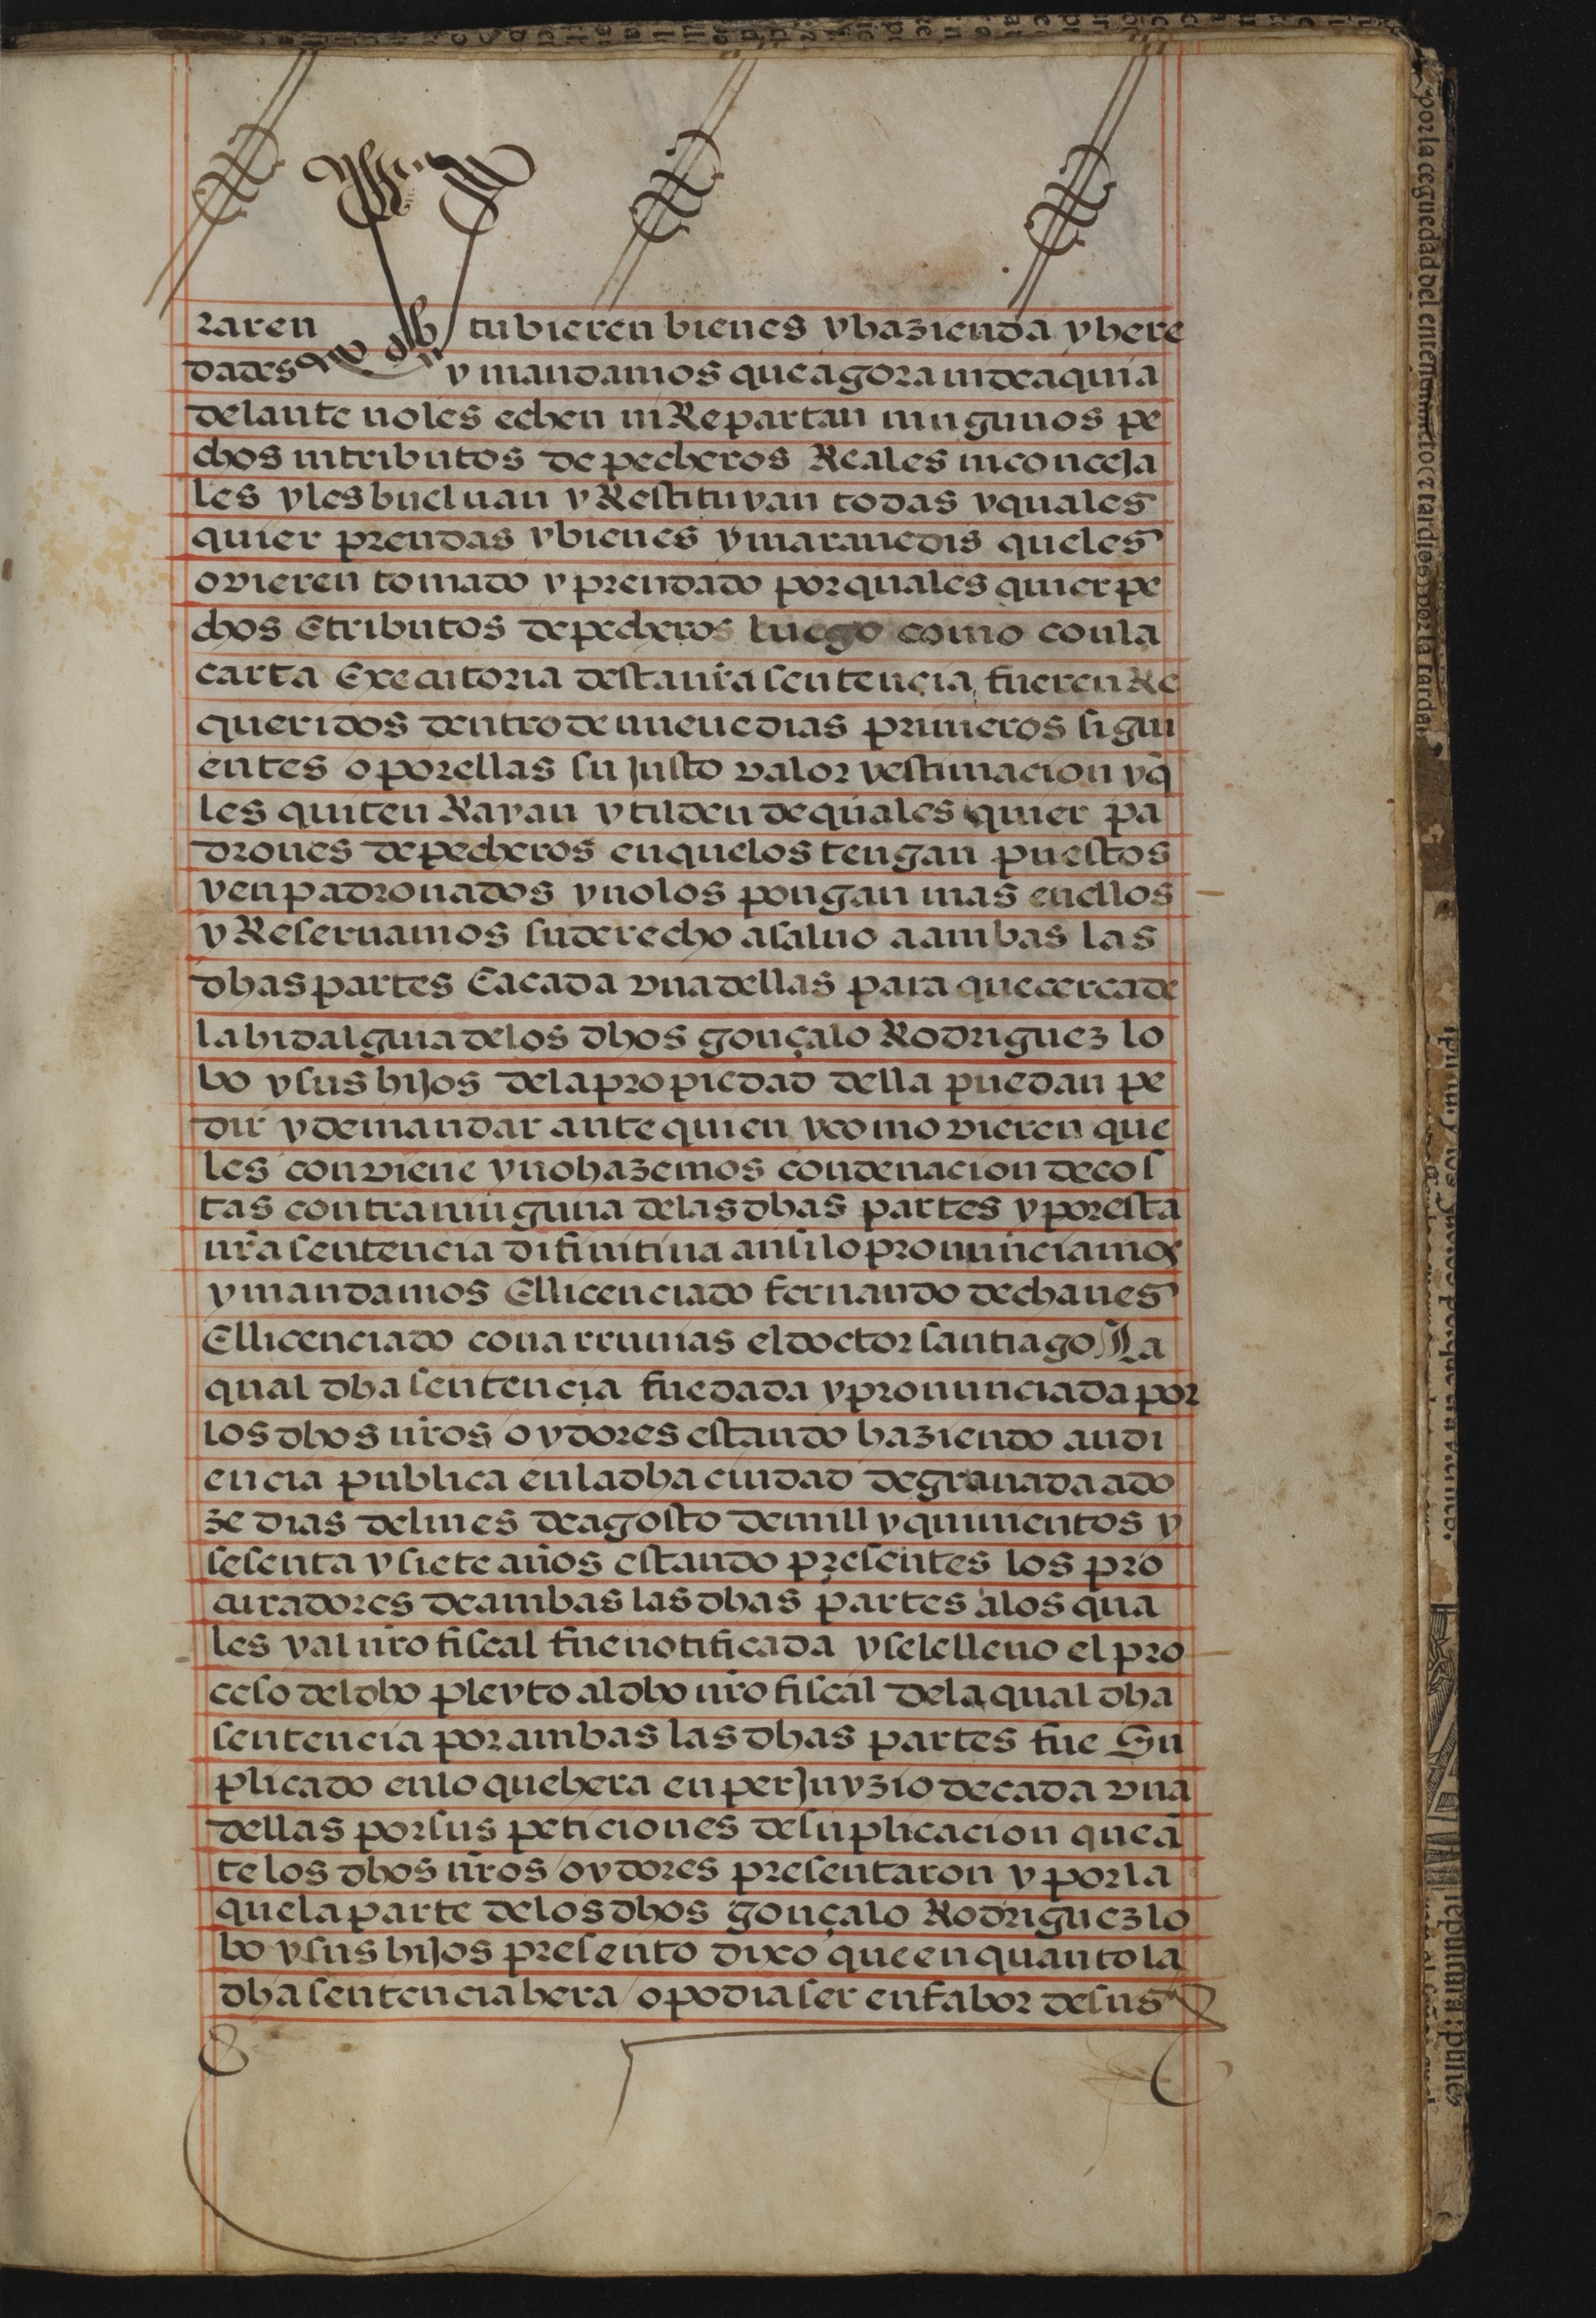 raren tubieren bienes y hazienda y here
dades y mandamos que agora ni de aqui a
delante no les echen ni Repartan ningunos pe
chos ni tributos de pecheros Reales ni conceja
les y les buelvan y Restituyan todas y quales
quier prendas y bienes y maravedis que les
ovieren tomado y prendado por quales quier pe
chos E tributos de pecheros luego como con la
carta Executoria desta nr̃a sentencia, fueren Re
queridos dentro de nueve dias primeros sigui
entes o por ellas su Justo valor y estimacion y q̃
les quiten Rayan y tilden de quales quier pa
drones de pecheros en que los tengan puestos
y enpadronados y no los pongan mas en ellos
y Reservamos su derecho a salvo a ambas las
dhas partes E a cada vna dellas para que cerca de
la hidalguia de los dhos gonçalo Rodriguez lo
bo y sus hijos de la propiedad della puedan pe
dir y demandar ante quien y como vieren que
les conviene y no hazemos condenacion de cos
tas contra ninguna de las dhas partes y por esta
nr̃a sentencia difinitiva ansi lo pronunciamos
y mandamos El licenciado fernando de chaves
El licenciado covarruvias el doctor santiago La
qual dha sentencia fue dada y pronunciada por
los dhos nr̃os oydores estando haziendo audi
encia publica en la dha ciudad de granada a do
ze dias del mes de agosto de mill y quinientos y
sesenta y siete años estando presentes los pro
curadores de ambas las dhas partes a los qua
les y al nr̃o fiscal fue notificada y se le llevo el pro
ceso del dho pleyto al dho nr̃o fiscal de la qual dha
sentencia por ambas las dhas partes fue Su
plicado en lo que hera en perJuyzio de cada vna
dellas por sus peticiones de suplicacion que ã
te los dhos nr̃os oydores presentaron y por la
que la parte de los dhos gonçalo Rodriguez lo
bo y sus hijos presento dixo que en quanto la
dha sentencia hera o podia ser en fabor de sus
por la ceguedad del entendimiento